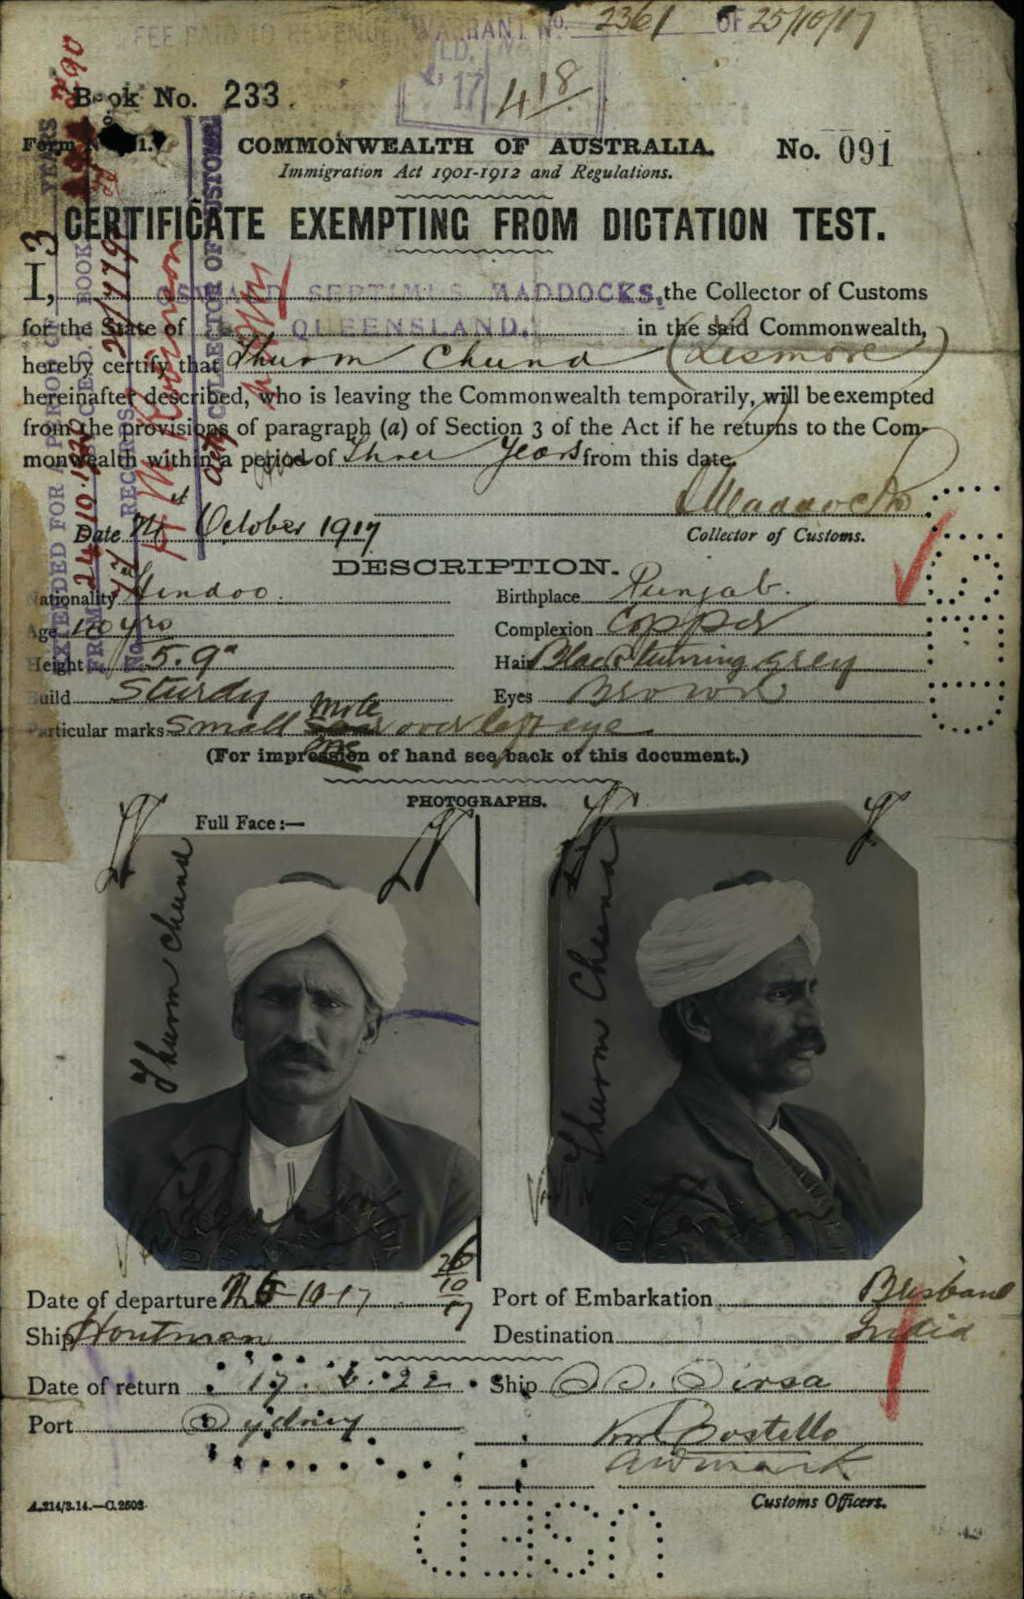 FEE PAID TO REVENUE
WARRANT No. 2361 OF 25/10/17
17 4 18
Book No. 233.
COMMONWEALTH OF AUSTRALIA. No. 091
Immigration Act 1901-1912 and Regulations.
CERTIFICATE EXEMPTING FROM DICTATION TEST.
I, OSWALD SEPTIMUS MADDOCKS, the Collector of Customs
for the State of QUEENSLAND. in the said Commonwealth,
hereby certify that Thurm Chund (Lismore)
hereinafter described, who is leaving the Commonwealth temporarily, will be exempted
from the provisions of paragraph (a) of Section 3 of the Act if he returns to the Com-
monwealth within a period of Three Years from this date.
O S Maddocks
Date October 1917 Collector of Customs.
EXTENDED FOR A PERIOD OF 3 YEARS
FROM 24.10.1920
C.D.T. BOOK
No. RECORDS
COLLECTOR OF CUSTOMS
DESCRIPTION.
Nationality Hindoo. Birthplace Punjab.
Age yrs Complexion Copper
Height 5.9" Hair Black turning grey
Build Sturdy Eyes Brown
Particular marks Small mole over left eye.
(For impression of hand see back of this document.)
PHOTOGRAPHS.
Full Face:—
Thurm Chund
Thurm Chund
Date of departure 26-10-17 26/10/17 Port of Embarkation Brisbane
Ship Houtman Destination India
Date of return 17.6.22 Ship S.S. Sirsa
Port Sydney
Costello
Customs Officers.
A.214/3.14.—C.2503
USED